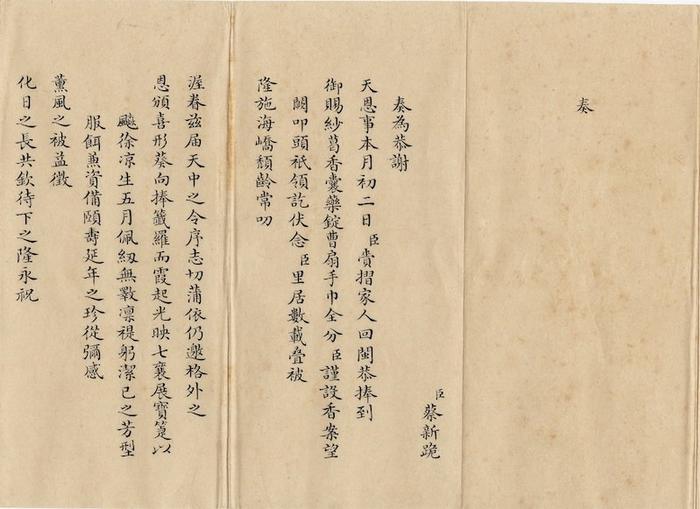 奏
臣蔡新跪
奏為恭謝
天恩事本月初二日臣賫摺家人回閩恭捧到
御賜紗葛香囊藥錠曹扇手巾全分臣謹設香案望
闕叩頭祗領訖伏念臣里居數載叠被
隆施海嶠頹齡常叨
渥眷兹届天中之令序志切蒲依仍邀格外之
恩頒喜形葵向捧籤羅而霞起光映七襄展寶箑以
颸徐凉生五月佩紉無斁凛禔躬潔已之芳型
服餌兼資備頤壽延年之珍從彌感
薰風之被益徵
化日之長共欽待下之隆永祝